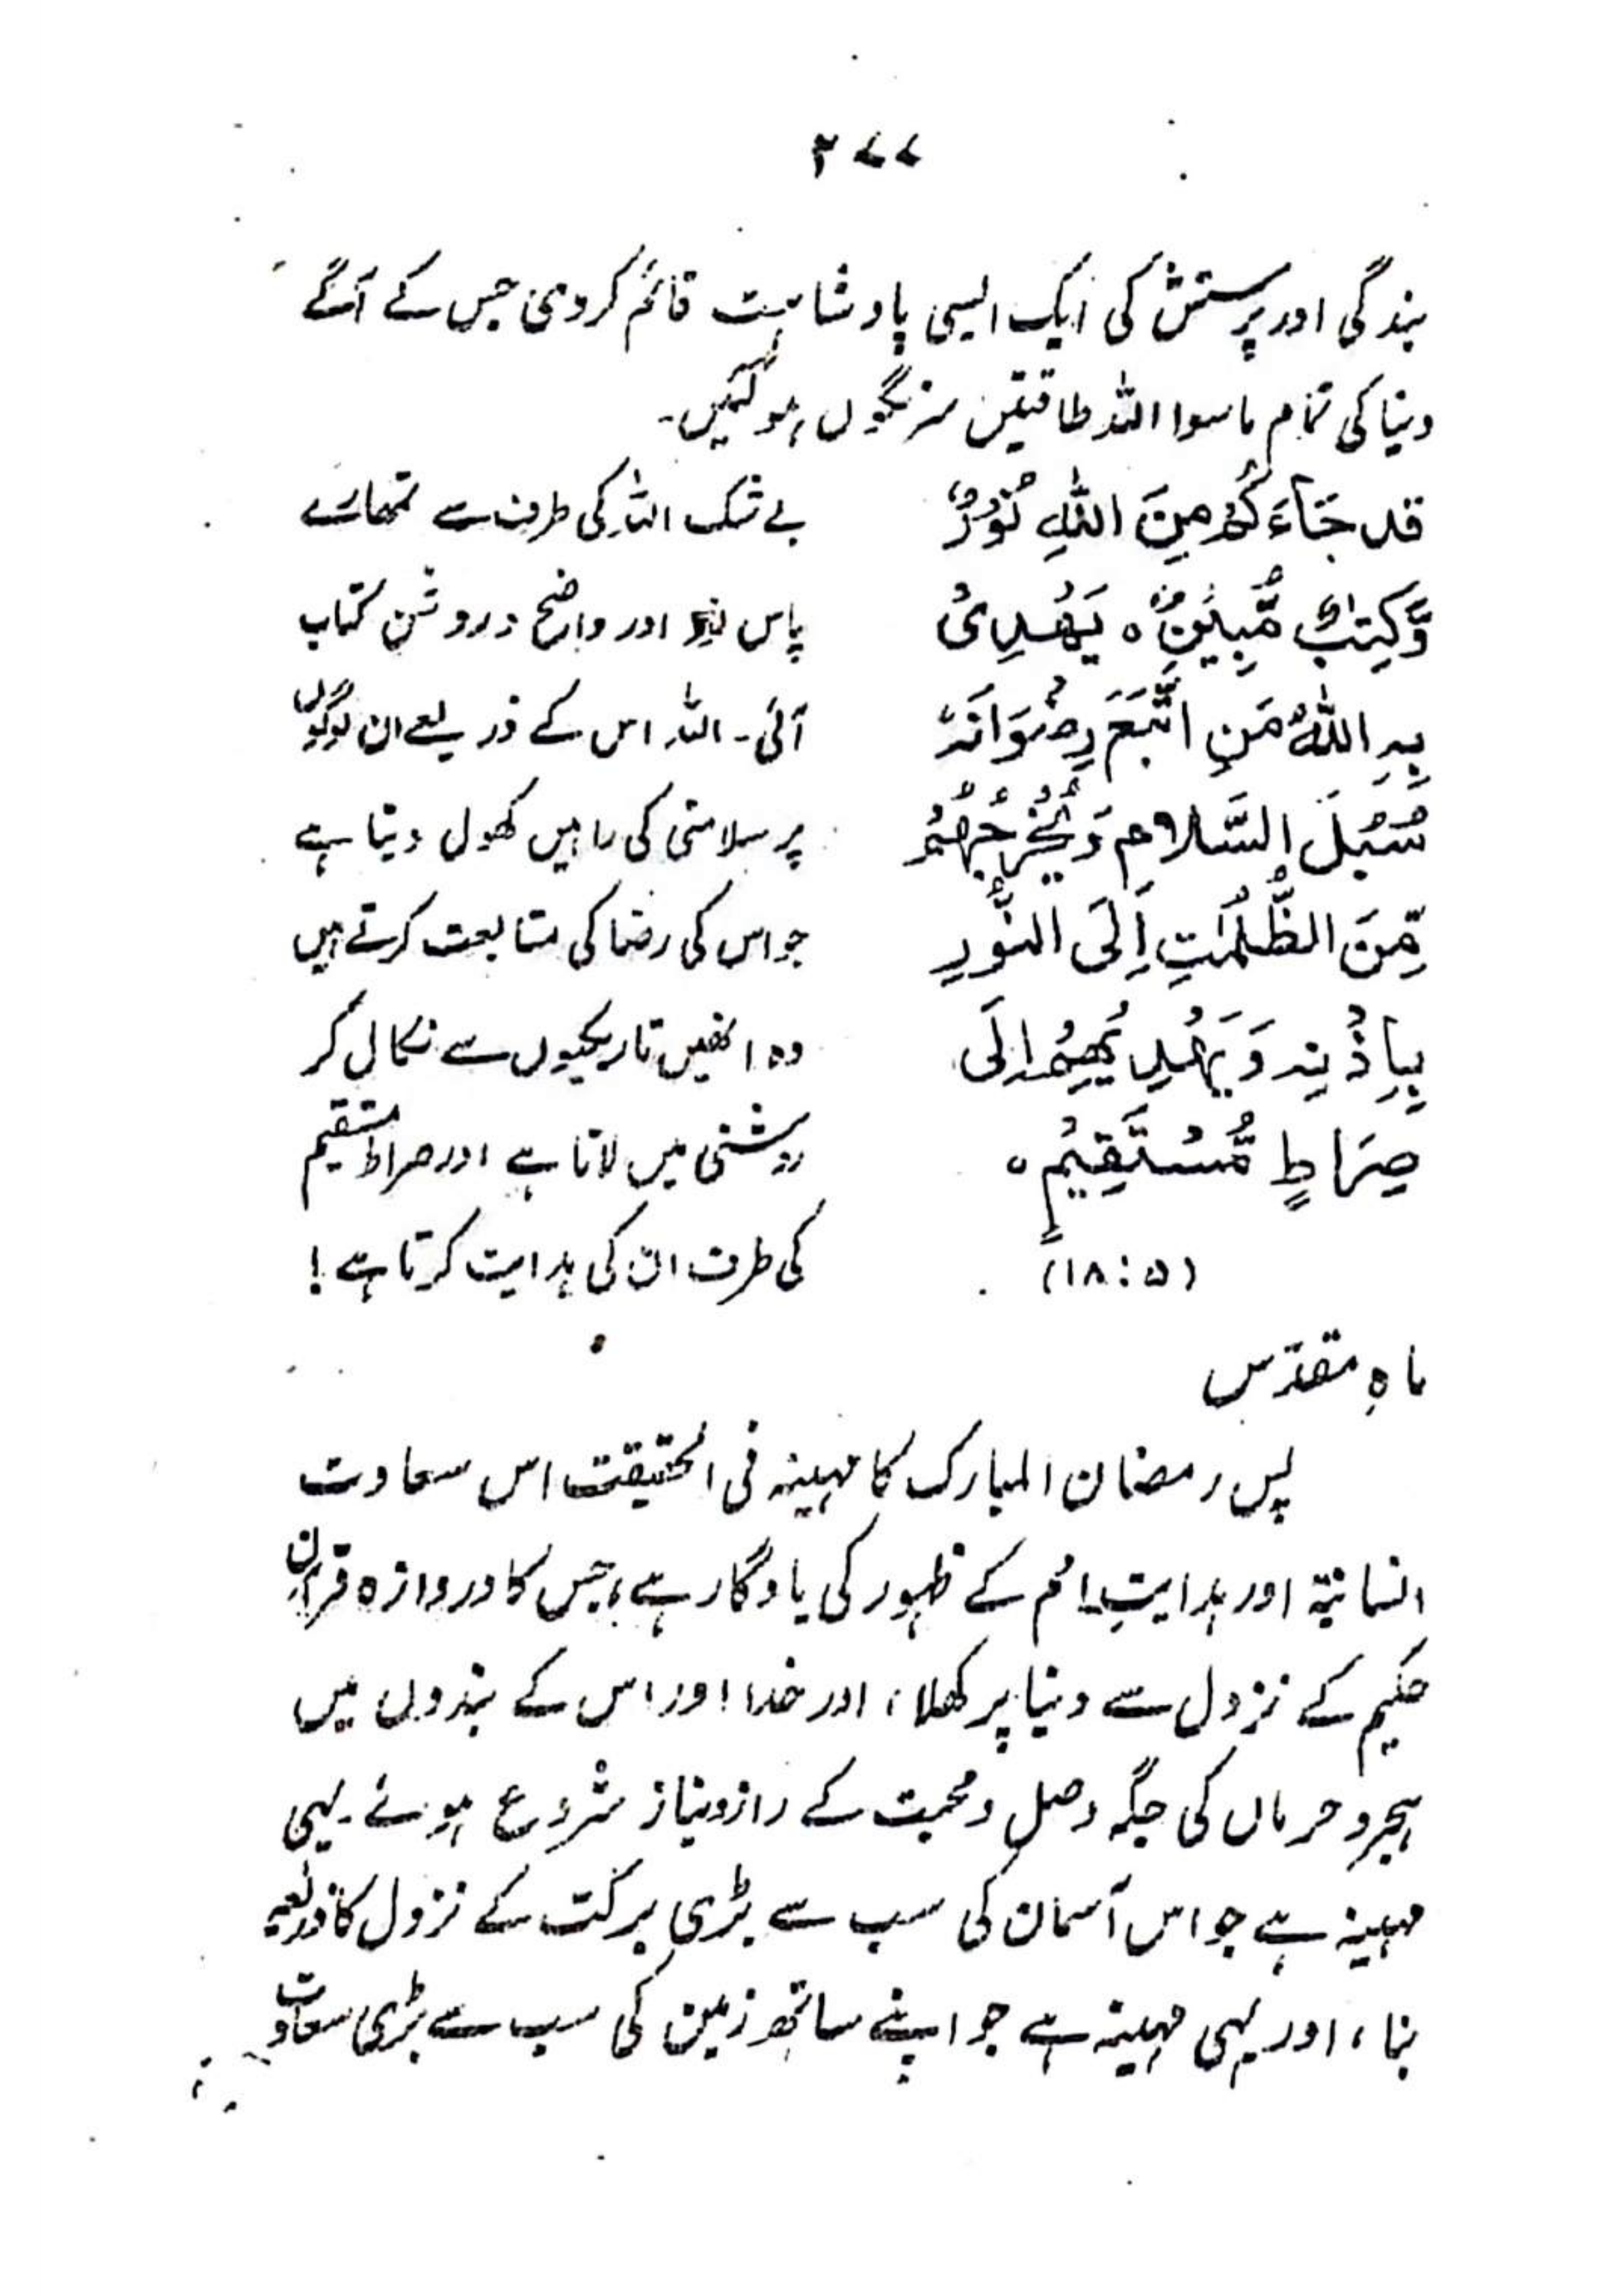 ۲۷۷
بندگی اور پرستش کی ایک ایسی پادشاہت قائم کردی جس کے آگے
دنیا کی تمام ماسوا اللہ طاقتیں سرنگوں ہوگئیں۔
قد جَاءَكُمْ مِنَ اللهِ نُوْرٌ
وَّكِتٰبٌ مُّبِيْنٌ ہ يَهْدِیْ
بِهِ اللهُ مَنِ اتَّبَعَ رِضْوَانَهٗ
سُبُلَ السَّلَامِ وَيُخْرِجُهُمْ
مِّنَ الظُّلُمٰتِ اِلَى النُّوْرِ
بِاِذْنِهٖ وَيَهْدِيْهِمْ اِلَى
صِرَاطٍ مُّسْتَقِيْمٍ ہ
(۱۸:۵)
بے شک اللہ کی طرف سے تمھارے
پاس نور اور واضح و روشن کتاب
آئی۔ اللہ اس کے ذریعے ان لوگوں
پر سلامتی کی راہیں کھول دیتا ہے
جو اس کی رضا کی متابعت کرتے ہیں
وہ انھیں تاریکیوں سے نکال کر
روشنی میں لاتا ہے اور صراط مستقیم
کی طرف ان کی ہدایت کرتا ہے!
ماہِ مقدّس
پس رمضان المبارک کا مہینہ فی الحقیقت اس سعادت
انسانیۃ اور ہدایتِ امم کے ظہور کی یادگار ہے، جس کا دروازہ قرآن
حکیم کے نزول سے دنیا پر کھلا، اور خدا اور اس کے بندوں میں
ہجر و حرماں کی جگہ وصل و محبت کے راز و نیاز شروع ہوئے۔ یہی
مہینہ ہے جو اس آسمان کی سب سے بڑی برکت کے نزول کا ذریعہ
بنا، اور یہی مہینہ ہے جو اپنے ساتھ زمین کی سب سے بڑی سعادت